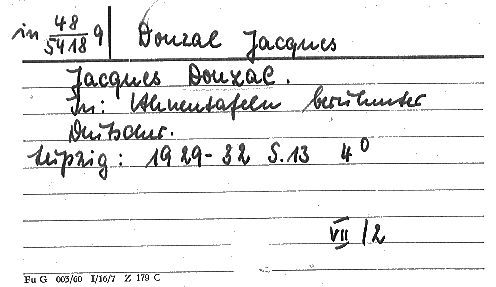 in 48/5418 9 Douzal Jacques
Jacques Douzal.
In: Ahnentafeln berühmter
Deutscher.
Leipzig: 1929-32 S.13 4°
VII/2
Fu G 003/60 I/16/7 Z 179 C